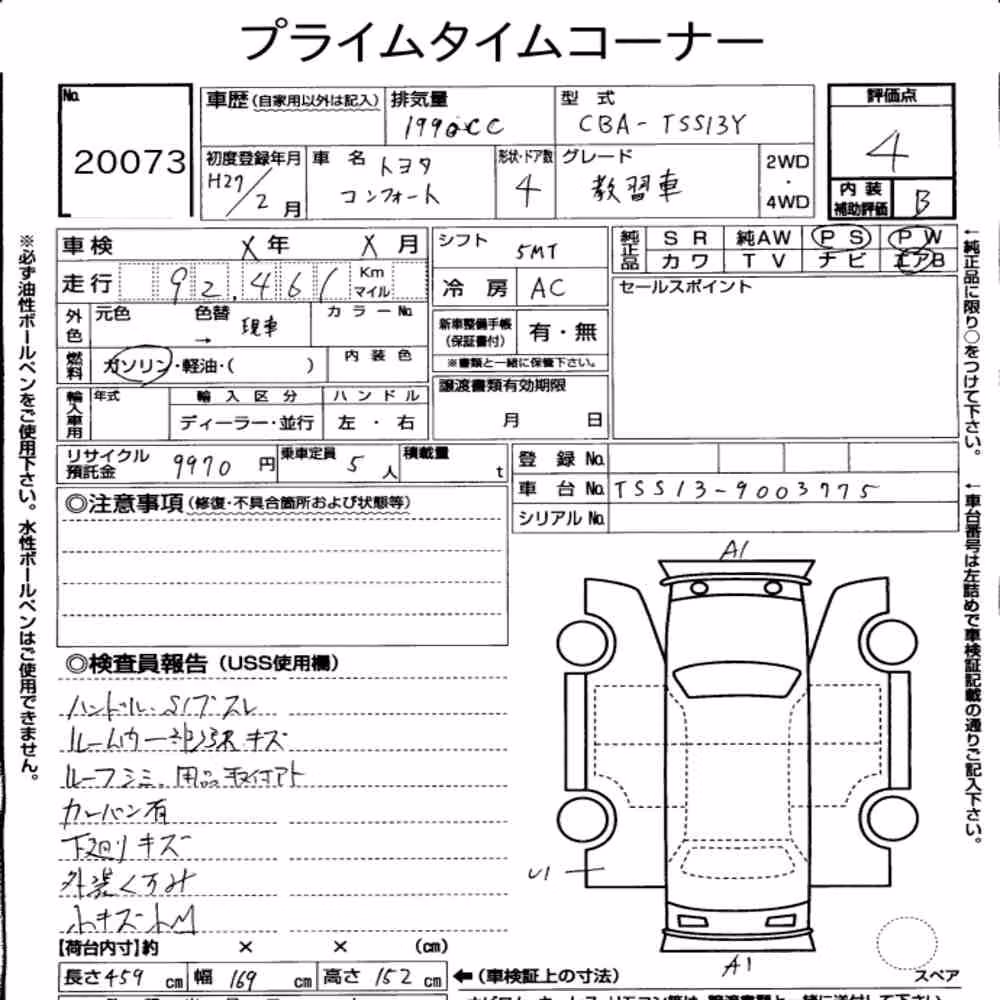 プライムタイムコーナー
No.
20073
車歴(自家用以外は記入)
排気量
1990CC
型 式
CBA-TSS13Y
評価点
4
初度登録年月
H27/2月
車 名
トヨタ
コンフォート
形状・ドア数
4
グレード
教習車
2WD
・
4WD
内 装
補助評価
B
車 検
X 年 X 月
走 行
92,461
Km
マイル
シフト
5MT
冷 房
AC
純正品
S R
純AW
P S
P W
カ ワ
T V
ナ ビ
エアB
セールスポイント
外色
元色
色替
→
現車
カ ラ ー No.
新車整備手帳
(保証書付)
有・無
※書類と一緒に保管下さい。
燃料
ガソリン・軽油・( )
内 装 色
譲渡書類有効期限
月 日
輸入車用
年式
輸 入 区 分
ディーラー・並行
ハ ン ド ル
左 ・ 右
リサイクル
預託金
9970 円
乗車定員
5 人
積載量
t
登 録 No.
車 台 No.
TSS13-9003775
シリアル No.
◎注意事項(修復・不具合箇所および状態等)
◎検査員報告(USS使用欄)
ハンドル・S/ブスレ
ルームウー部分張キズ
ルーフシミ、用品取付アト
カーバン有
下廻りキズ
外装くすみ
小キズ小凹
A1
U1
A1
スペア
【荷台内寸】約 × × (cm)
長さ 459 cm
幅 169 cm
高さ 152 cm
←(車検証上の寸法)
※必ず油性ボールペンをご使用下さい。水性ボールペンはご使用できません。
←純正品に限り○をつけて下さい。
←車台番号は左詰めで車検証記載の通りご記入下さい。